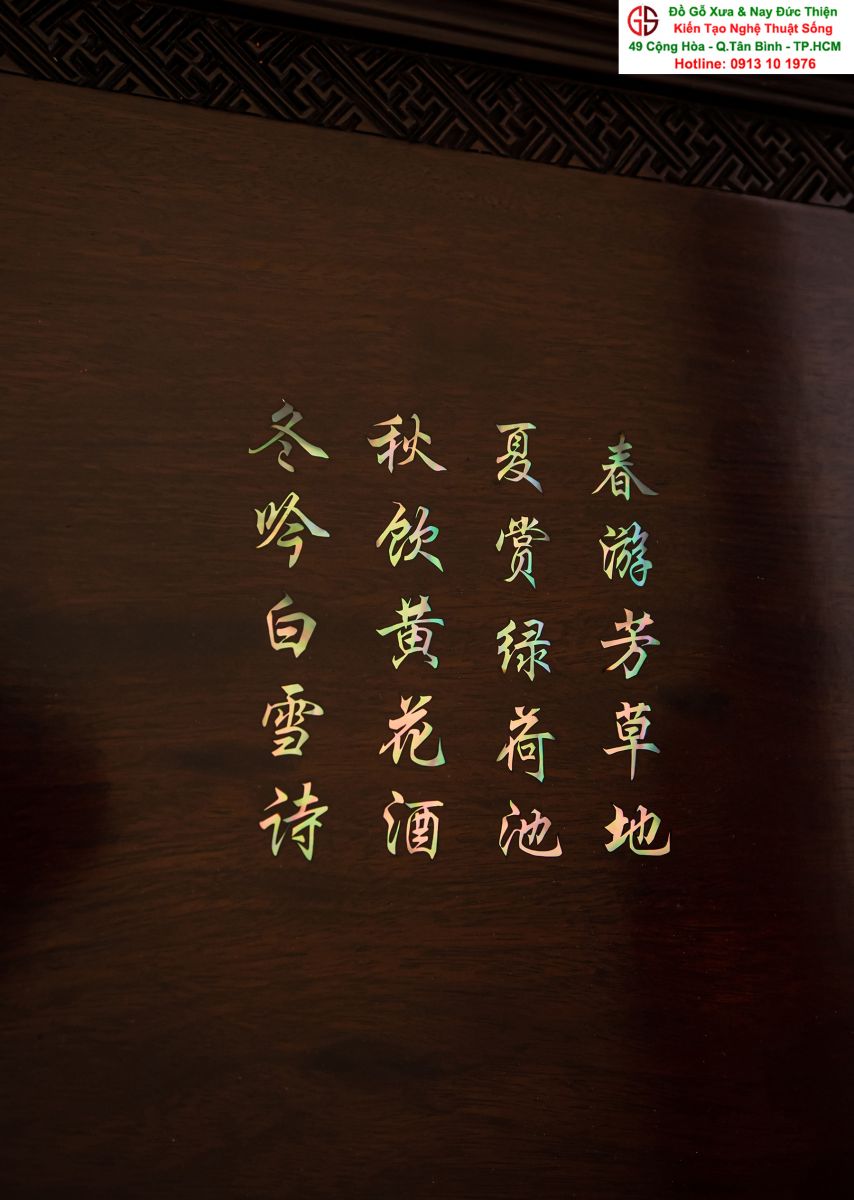 Đồ Gỗ Xưa & Nay Đức Thiện
Kiến Tạo Nghệ Thuật Sống
49 Cộng Hòa - Q.Tân Bình - TP.HCM
Hotline: 0913 10 1976
春游芳草地
夏赏绿荷池
秋饮黄花酒
冬吟白雪诗